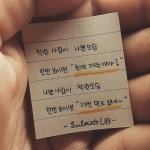 착한 사람이 나쁜모습
한번 보이면 "원래 저런 애야?"
나쁜 사람이 착한모습
한번 보이면 "저런 면도 있네~"
- Soulmate UB -